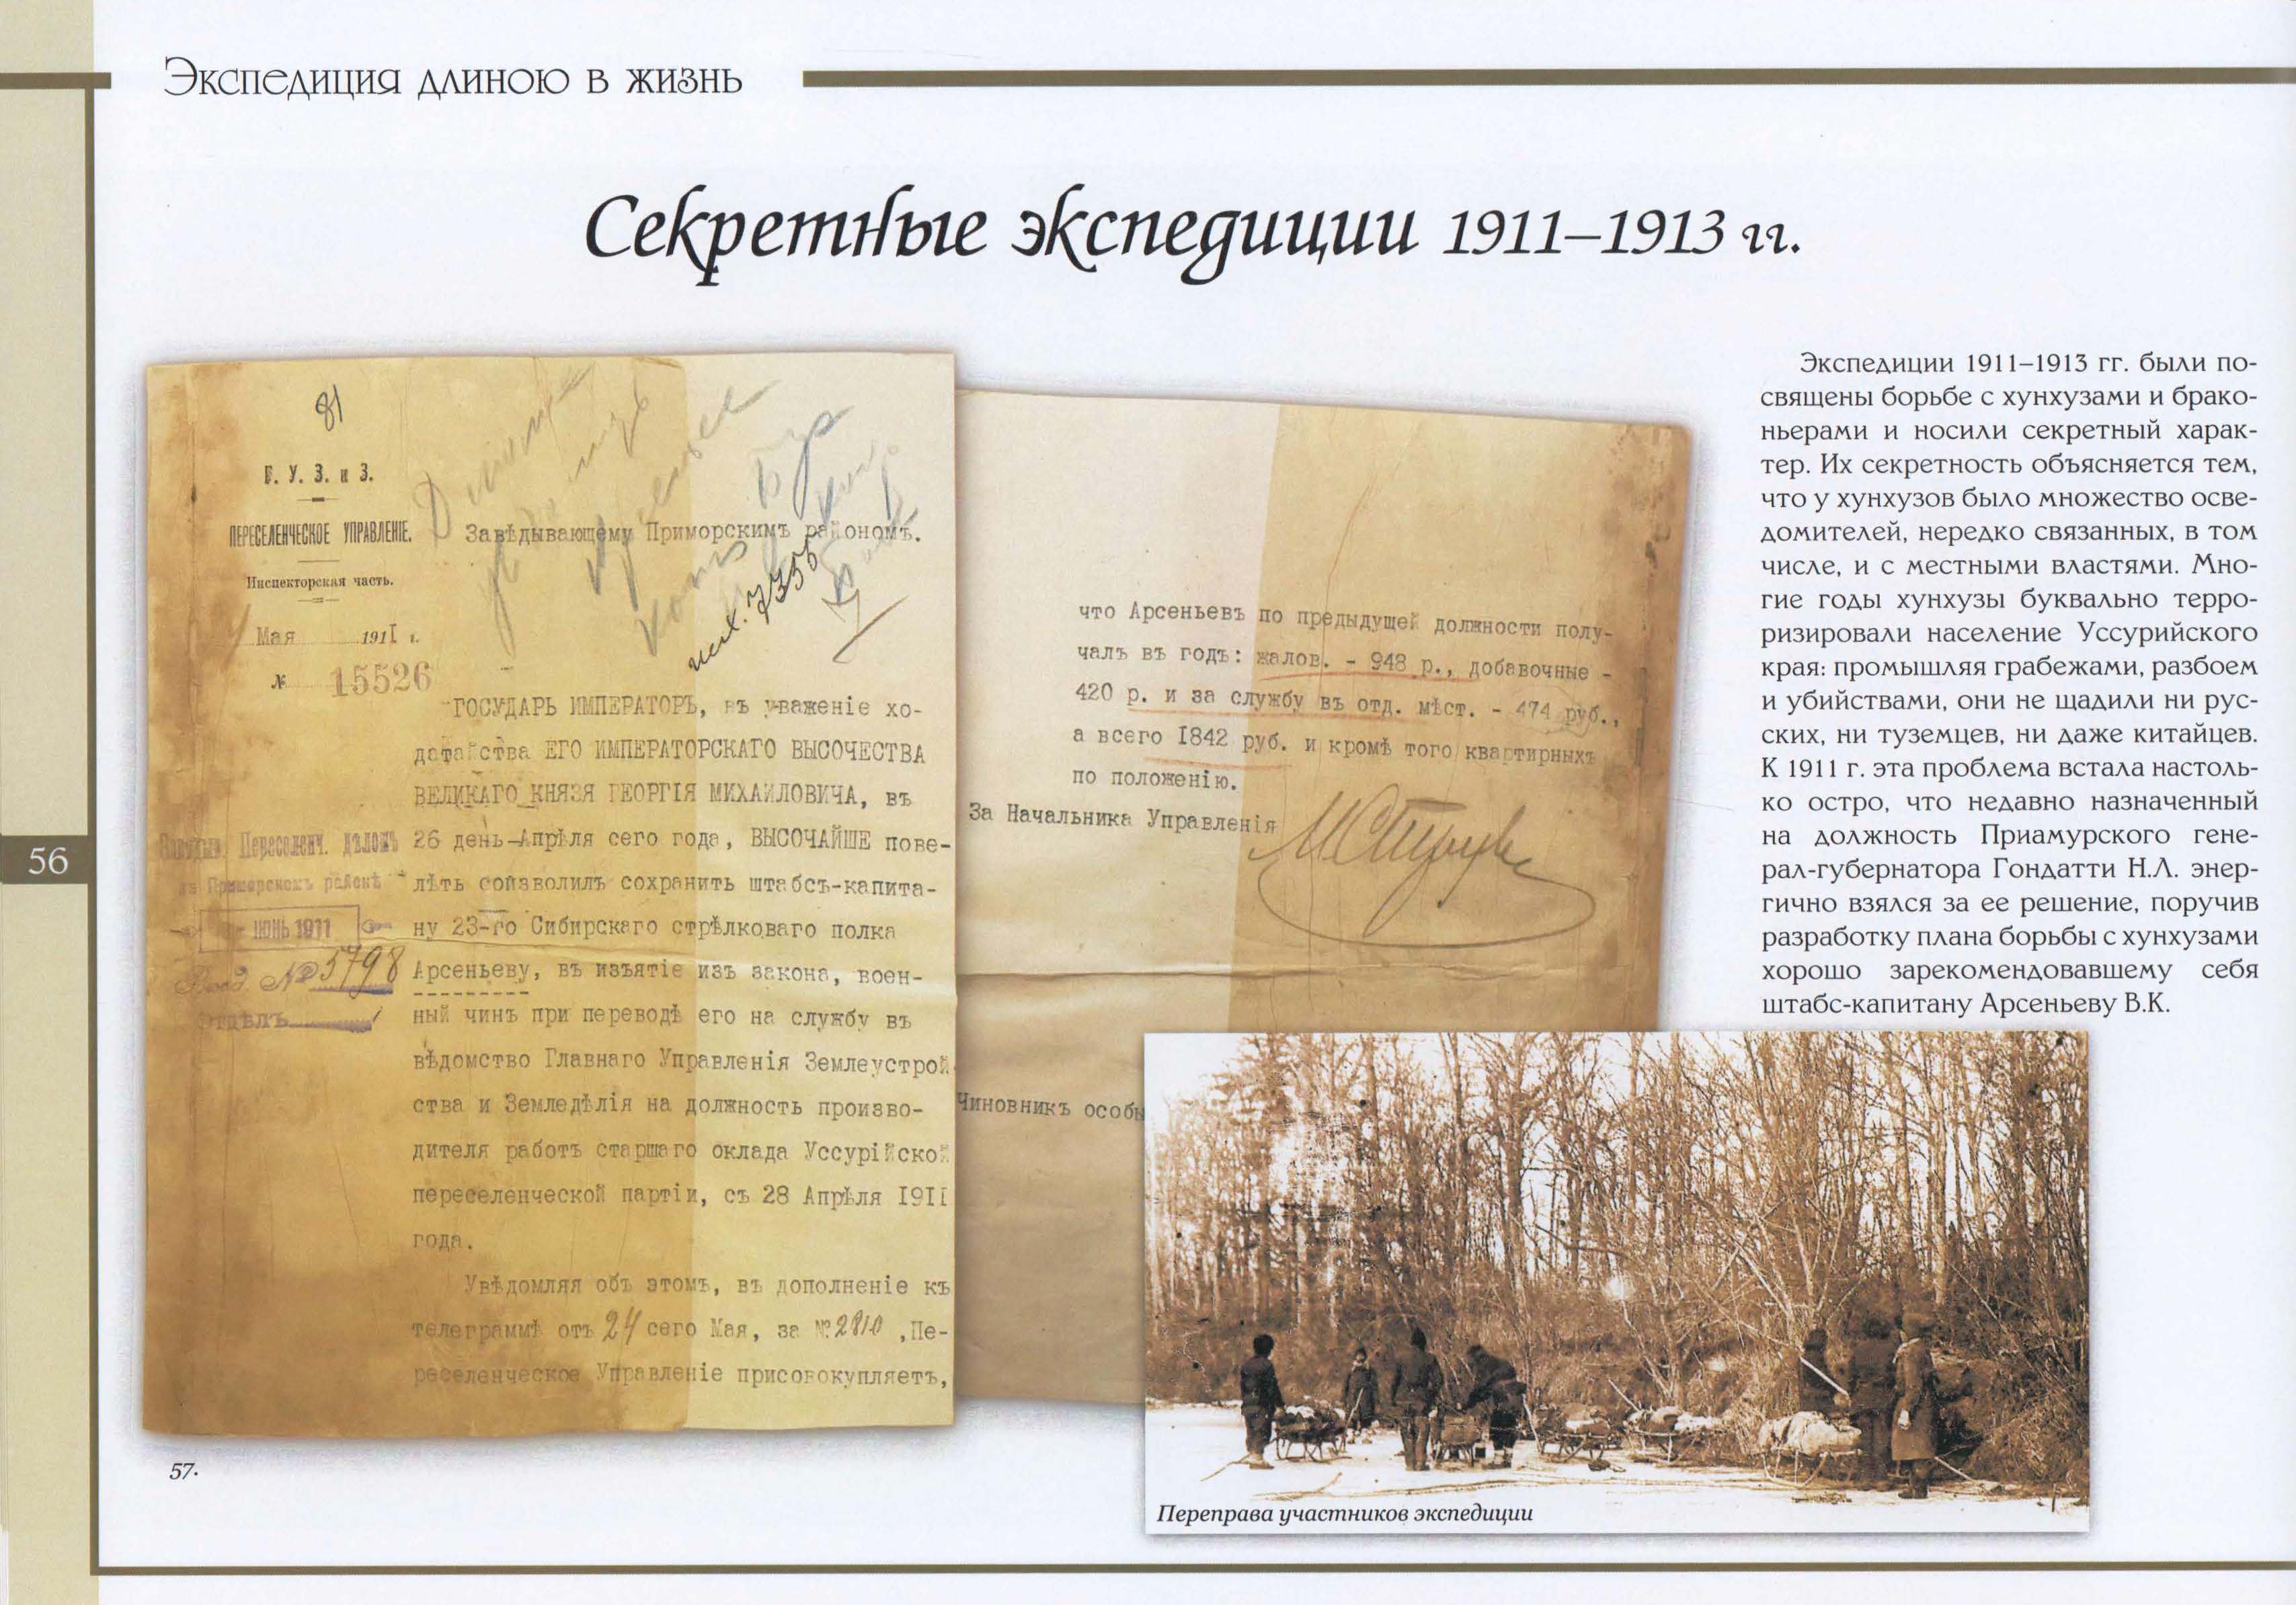 Экспедиция длиною в жизнь
Секретные экспедиции 1911–1913 гг.
81
Г. У. З. и З.
ПЕРЕСЕЛЕНЧЕСКОЕ УПРАВЛЕНІЕ.
Инспекторская часть.
Мая 1911 г.
№ 15526
Завѣдывающему Приморскимъ райономъ.
исх. 7355
ГОСУДАРЬ ИМПЕРАТОРЪ, въ уваженіе хо-
датайства ЕГО ИМПЕРАТОРСКАГО ВЫСОЧЕСТВА
ВЕЛИКАГО КНЯЗЯ ГЕОРГІЯ МИХАИЛОВИЧА, въ
26 день Апрѣля сего года, ВЫСОЧАЙШЕ пове-
лѣть соизволилъ сохранить штабсъ-капита-
ну 23-го Сибирскаго стрѣлковаго полка
Арсеньеву, въ изъятіе изъ закона, воен-
ный чинъ при переводѣ его на службу въ
вѣдомство Главнаго Управленія Землеустрой
ства и Земледѣлія на должность произво-
дителя работъ старшаго оклада Уссурійской
переселенческой партіи, съ 28 Апрѣля 1911
года.
Увѣдомляя объ этомъ, въ дополненіе къ
телеграммѣ отъ 24 сего Мая, за № 2810 ,Пе-
реселенческое Управленіе присовокупляетъ,
Переселенч. дѣломъ
въ Приморскомъ районѣ
ІЮНЬ 1911
Вход. № 5798
Отдѣлъ
что Арсеньевъ по предыдущей должности полу-
чалъ въ годъ: жалов. - 948 р., добавочные -
420 р. и за службу въ отд. мѣст. - 474 руб.,
а всего 1842 руб. и кромѣ того квартирныхъ
по положенію.
За Начальника Управленія
Чиновникъ особы
Экспедиции 1911–1913 гг. были по-
священы борьбе с хунхузами и брако-
ньерами и носили секретный харак-
тер. Их секретность объясняется тем,
что у хунхузов было множество осве-
домителей, нередко связанных, в том
числе, и с местными властями. Мно-
гие годы хунхузы буквально терро-
ризировали население Уссурийского
края: промышляя грабежами, разбоем
и убийствами, они не щадили ни рус-
ских, ни туземцев, ни даже китайцев.
К 1911 г. эта проблема встала настоль-
ко остро, что недавно назначенный
на должность Приамурского гене-
рал-губернатора Гондатти Н.Л. энер-
гично взялся за ее решение, поручив
разработку плана борьбы с хунхузами
хорошо зарекомендовавшему себя
штабс-капитану Арсеньеву В.К.
56
57.
Переправа участников экспедиции